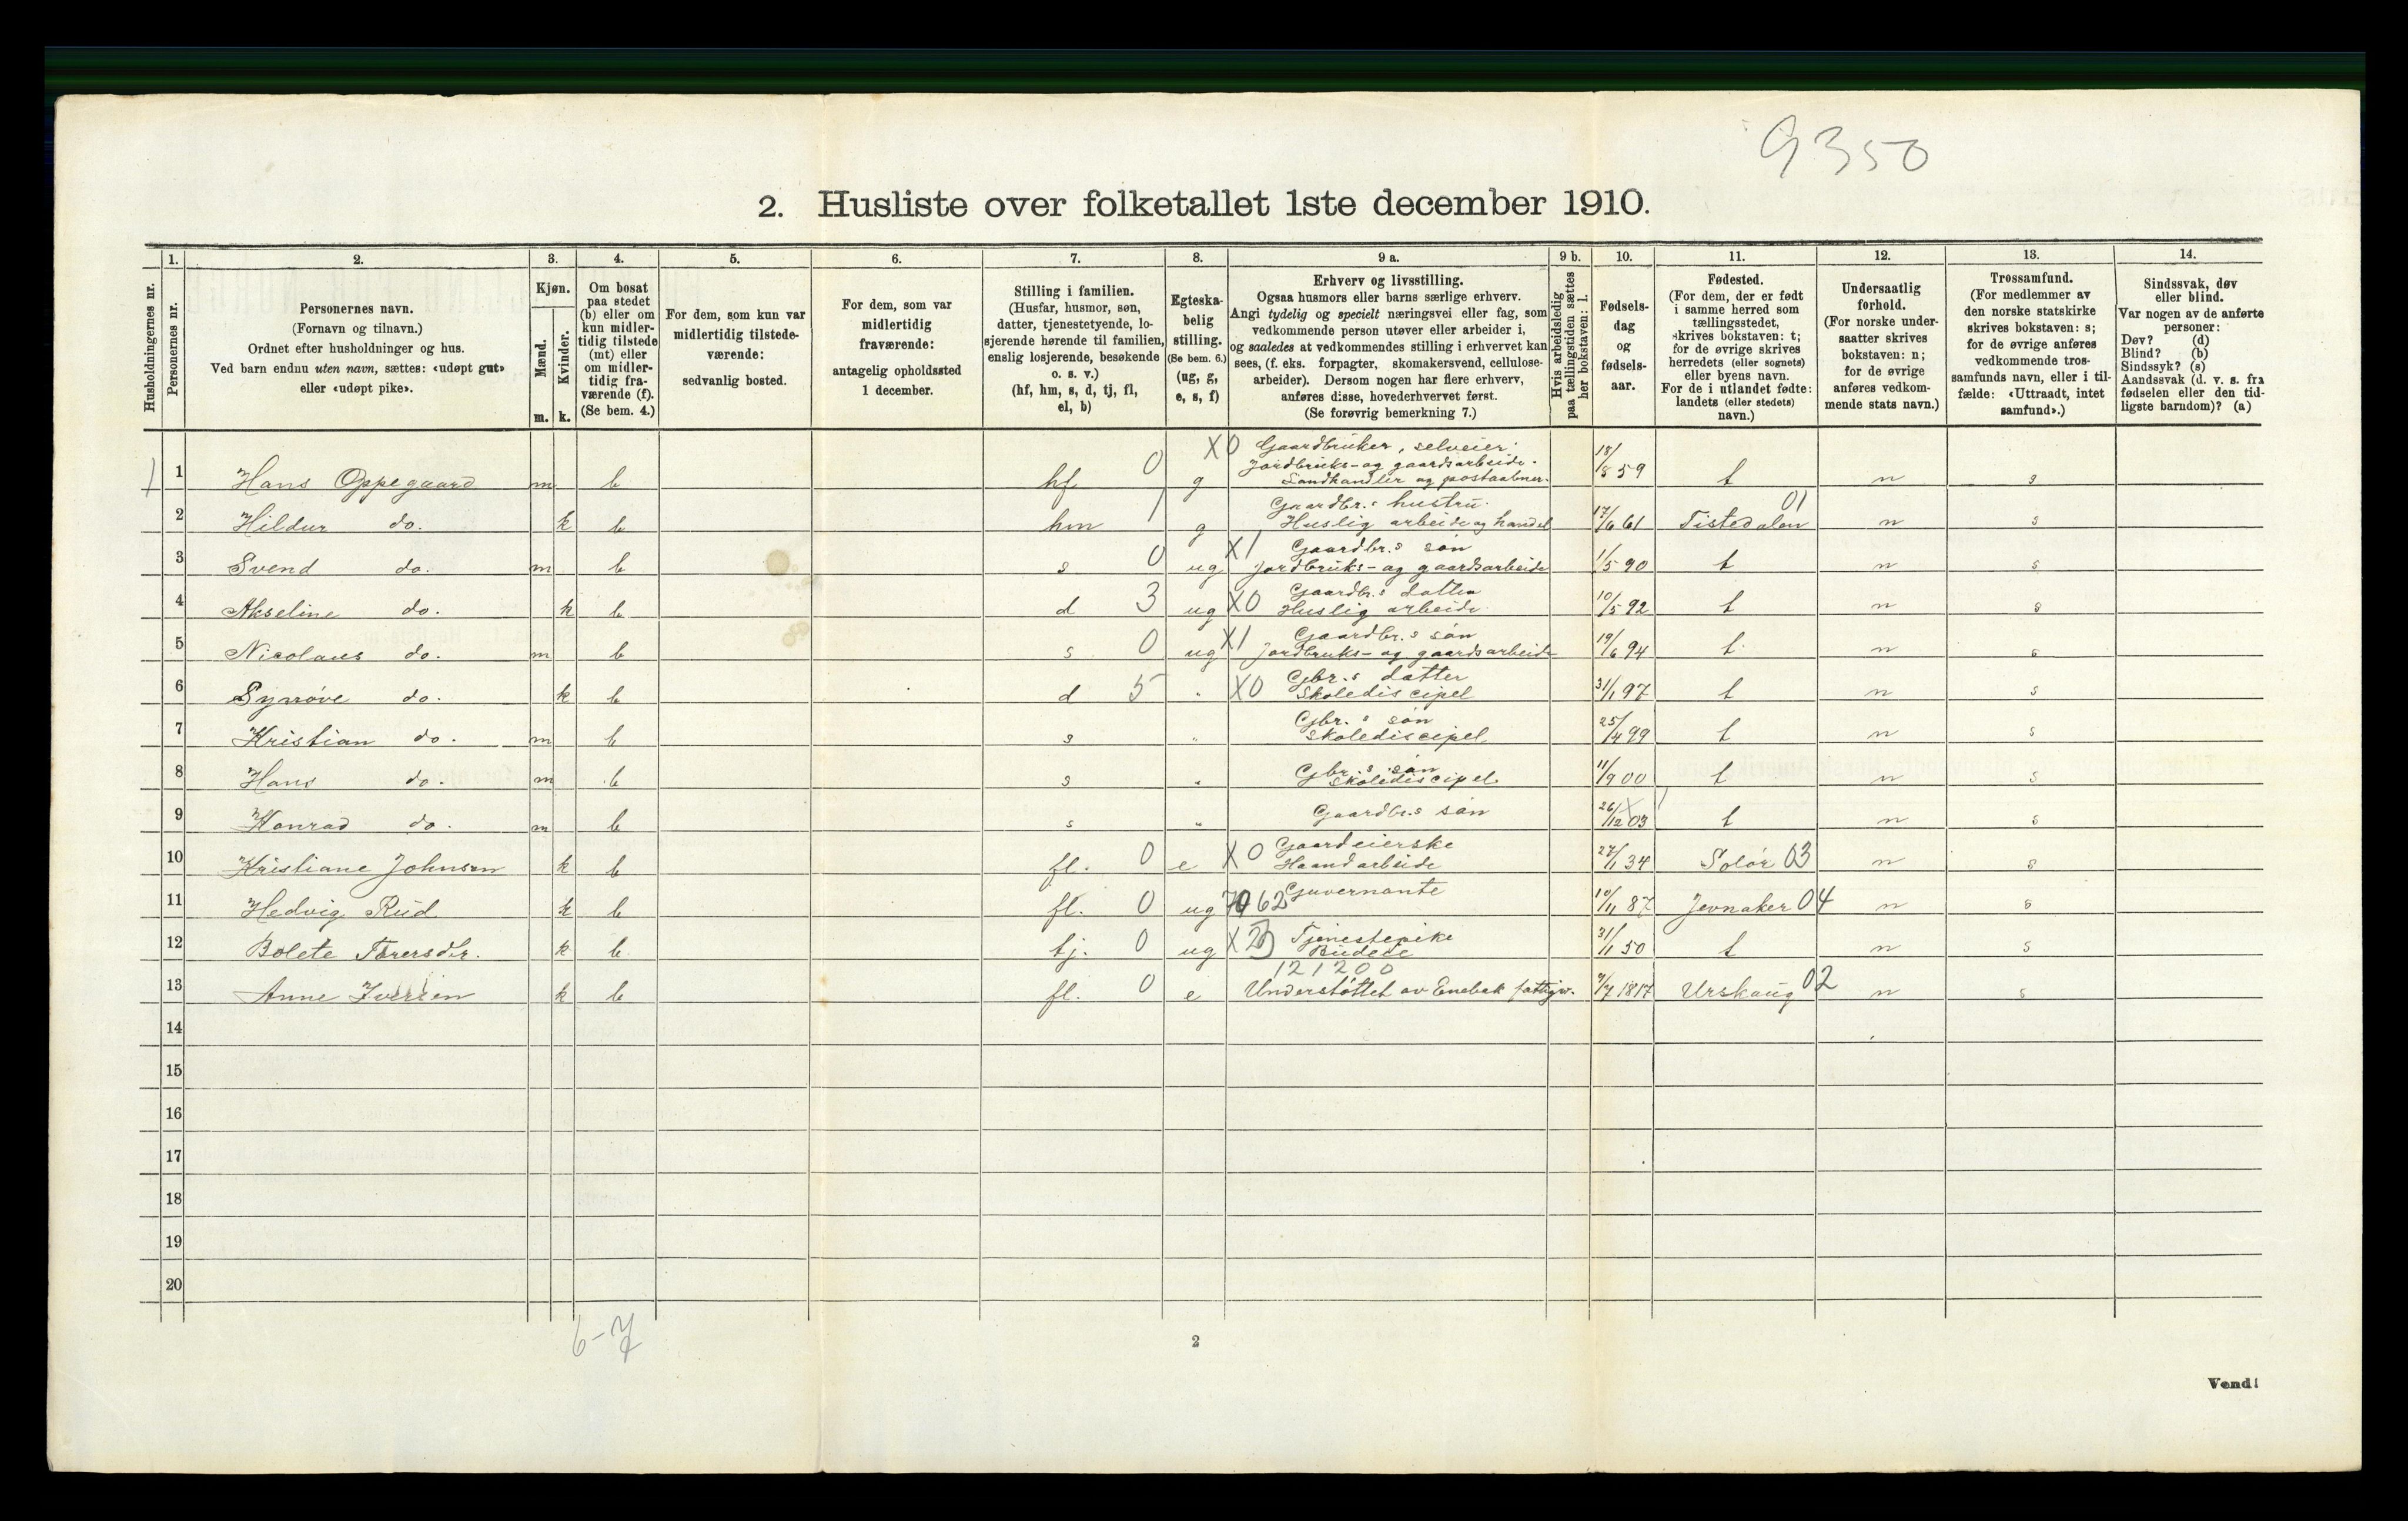 9350
2. Husliste over folketallet 1ste december 1910.
Husholdningernes nr.
1.
Personernes nr.
2.
Personernes navn.
(Fornavn og tilnavn.)
Ordnet efter husholdninger og hus.
Ved barn endnu uten navn, sættes: «udøpt gut»
eller «udøpt pike».
3.
Kjøn.
Mænd.
Kvinder.
m. k.
4.
Om bosat
paa stedet
(b) eller om
kun midler-
tidig tilstede
(mt) eller
om midler-
tidig fra-
værende (f).
(Se bem. 4.)
5.
For dem, som kun var
midlertidig tilstede-
værende:
sedvanlig bosted.
6.
For dem, som var
midlertidig
fraværende:
antagelig opholdssted
1 december.
7.
Stilling i familien.
(Husfar, husmor, søn,
datter, tjenestetyende, lo-
sjerende hørende til familien,
enslig losjerende, besøkende
o. s. v.)
(hf, hm, s, d, tj, fl,
el, b)
8.
Egteska-
belig
stilling.
(Se bem. 6.)
(ug, g,
e, s, f)
9 a.
Erhverv og livsstilling.
Ogsaa husmors eller barns særlige erhverv.
Angi tydelig og specielt næringsvei eller fag, som
vedkommende person utøver eller arbeider i,
og saaledes at vedkommendes stilling i erhvervet kan
sees, (f. eks. forpagter, skomakersvend, cellulose-
arbeider). Dersom nogen har flere erhverv,
anføres disse, hovederhvervet først.
(Se forøvrig bemerkning 7.)
9 b.
Hvis arbeidsledig
paa tællingstiden sættes
her bokstaven: l.
10.
Fødsels-
dag
og
fødsels-
aar.
11.
Fødested.
(For dem, der er født
i samme herred som
tællingsstedet,
skrives bokstaven: t;
for de øvrige skrives
herredets (eller sognets)
eller byens navn.
For de i utlandet fødte:
landets (eller stedets)
navn.)
12.
Undersaatlig
forhold.
(For norske under-
saatter skrives
bokstaven: n;
for de øvrige
anføres vedkom-
mende stats navn.)
13.
Trossamfund.
(For medlemmer av
den norske statskirke
skrives bokstaven: s;
for de øvrige anføres
vedkommende tros-
samfunds navn, eller i til-
fælde: «Uttraadt, intet
samfund».)
14.
Sindssvak, døv
eller blind.
Var nogen av de anførte
personer:
Døv? (d)
Blind? (b)
Sindssyk? (s)
Aandssvak (d. v. s. fra
fødselen eller den tid-
ligste barndom)? (a)
1 1 Hans Oppegaard m b hf 0 g X0 Gaardbruker, selveier. Jordbruks- og gaardsarbeide. Landhandler og postaabner. 18/8 59 t n s
2 Hildur do. k b hm 1 g Gaardbr.s hustru. Huslig arbeide og handel 17/6 61 Tistedalen 01 n s
3 Svend do. m b s 0 ug X1 Gaardbr.s søn Jordbruks- og gaardsarbeide 1/5 90 t n s
4 Akseline do. k b d 3 ug X0 Gaardbr.s datter Huslig arbeide 10/5 92 t n s
5 Nicolaus do. m b s 0 ug X1 Gaardbr.s søn Jordbruks- og gaardsarbeide 19/6 94 t n s
6 Synnøve do. k b d 5 " X0 Gbr.s datter Skolediscipel 31/1 97 t n s
7 Kristian do. m b s " Gbr.s søn Skolediscipel 25/4 99 t n s
8 Hans do. m b s " Gbr.s søn Skolediscipel 11/9 00 t n s
9 Konrad do. m b s " Gaardbr.s søn 26/12 03 t n s
10 Kristiane Johnsen k b fl. 0 e X0 Gaardeierske Haandarbeide 27/1 34 Solør 03 n s
11 Hedvig Rud k b fl. 0 ug 62 Guvernante 10/11 87 Jevnaker 04 n s
12 Bolete Torersdtr. k b tj. 0 ug X Tjenestepike Budeie 31/1 50 t n s
121200
13 Anne Iversen k b fl. 0 e Understøttet av Enebak fattigv. 7/7 1817 Urskaug 02 n s
14
15
16
17
18
19
20
6-7
2
Vend!